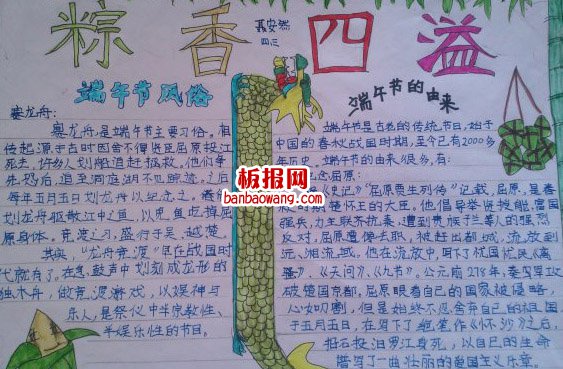 粽香四溢
聂安然
四三
端午节风俗
赛龙舟:
赛龙舟,是端午节主要习俗。相
传起源于古时因舍不得贤臣屈原投江
死去,许多人划船追赶拯救。他们争
先恐后,追至洞庭湖不见踪迹。之后
每年五月五日划龙舟以纪念之。
划龙舟驱散江中之鱼,以免鱼吃掉屈
原身体。竞渡之习,盛行于吴、越、楚。
其实,“龙舟竞渡”早在战国时
代就有了。在急鼓声中划刻成龙形的
独木舟,做竞渡游戏,以娱神与
乐人,是祭仪中半宗教性、
半娱乐性的节目。
端午节的由来
端午节是古老的传统节日,始于
中国的春秋战国时期,至今已有2000多
年历史。端午节的由来很多,有:
念屈原:
《史记》“屈原贾生列传”记载,屈原,是春
时期楚怀王的大臣。他倡导举贤授能,富国
强兵,力主联齐抗秦,遭到贵族子兰等人的强烈
反对,屈原遭馋去职,被赶出都城,流放到
沅、湘流域。他在流放中,写下了忧国忧民《离
骚》、《天问》、《九节》。公元前278年,秦军
破楚国京都。屈原眼看自己的国家被侵略,
心如切割,但是始终不忍舍弃自己的祖国,
于五月五日,在写下了绝笔作《怀沙》之后,
抱石投汨罗江身死,以自己的生命
谱写了一曲壮丽的爱国主义乐章。
板报网
banbaowang.com